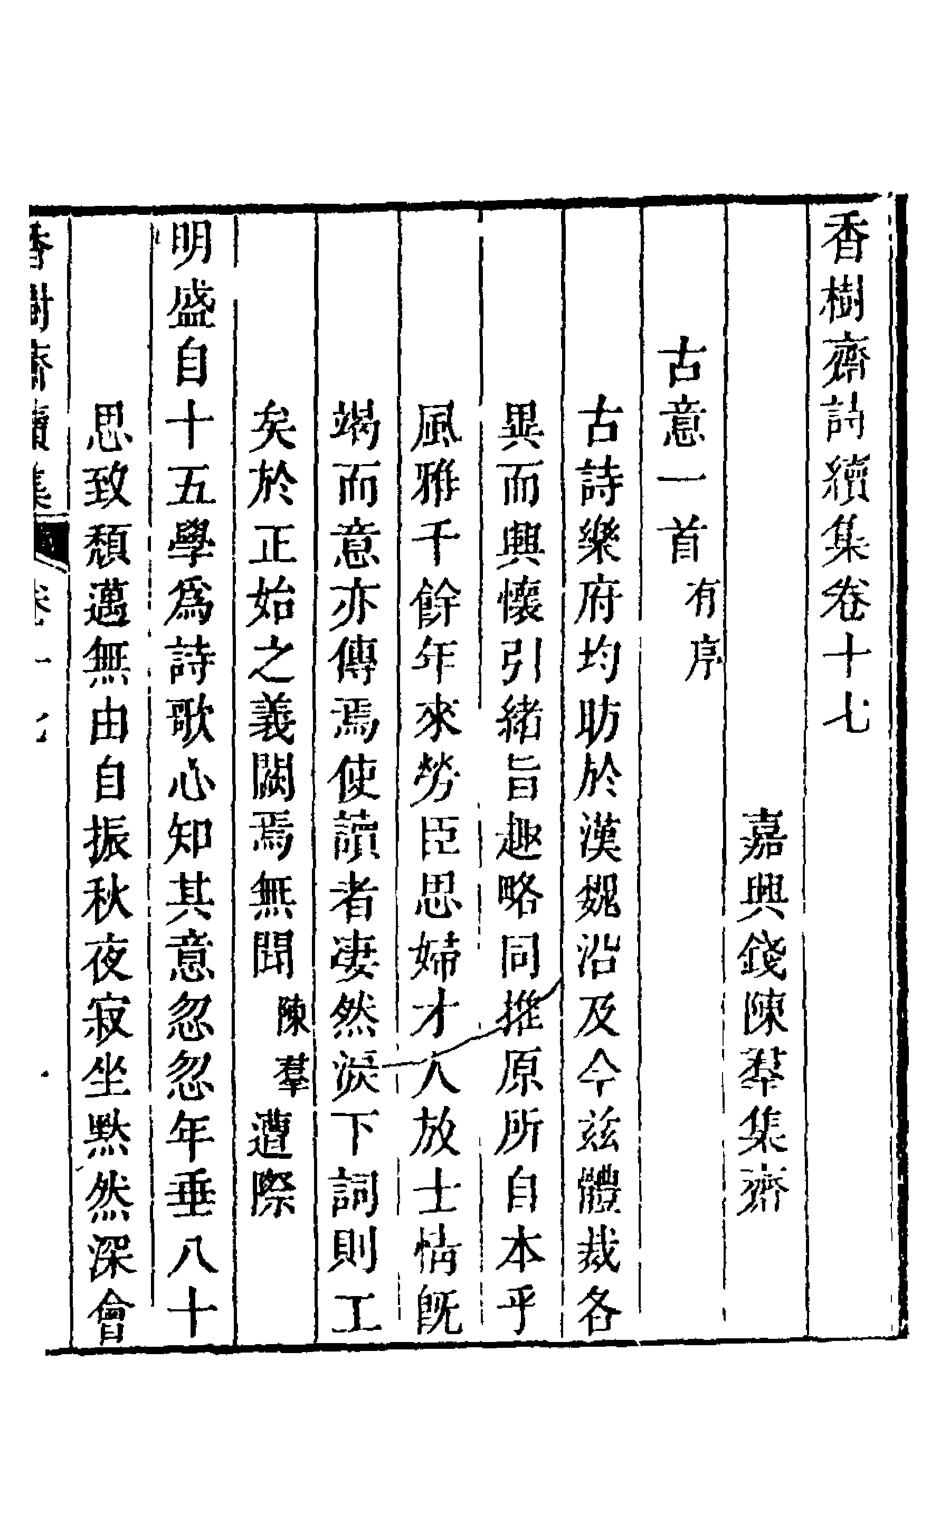 香樹齋詩續集卷十七
嘉興錢陳羣集齋
古意一首有序
古詩樂府均昉於漢魏沿及今茲體裁各
異而興懷引緒旨趣略同推原所自本乎
風雅千餘年來勞臣思婦才人放士情旣
竭而意亦傳焉使讀者凄然淚下詞則工
矣於正始之義闕焉無聞陳羣遭際
明盛自十五學爲詩歌心知其意忽忽年垂八十
思致頹邁無由自振秋夜寂坐黙然深會
香樹齋續集 卷十七